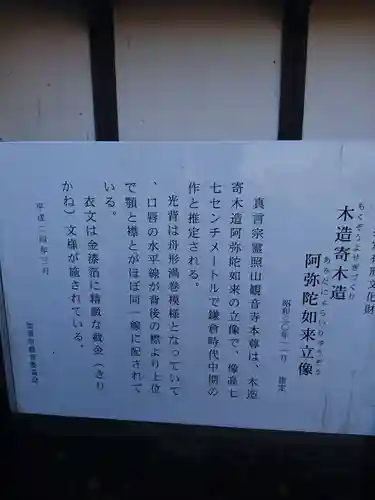 もくぞうよせぎづくり
木造寄木造
あみだにょらいりゅうぞう
阿弥陀如来立像
昭和三〇年一一月 指定
真言宗霊照山観音寺本尊は、木造
寄木造阿弥陀如来の立像で、像高七
七センチメートルで鎌倉時代中期の
作と推定される。
光背は舟形渦巻模様となっていて
、口唇の水平線が背後の標より上位
で顎と襟とがほぼ同一線に配されて
いる。
衣文は金漆箔に精緻な截金（きり
かね）文様が施されている。
平成二四年三月
加須市教育委員会